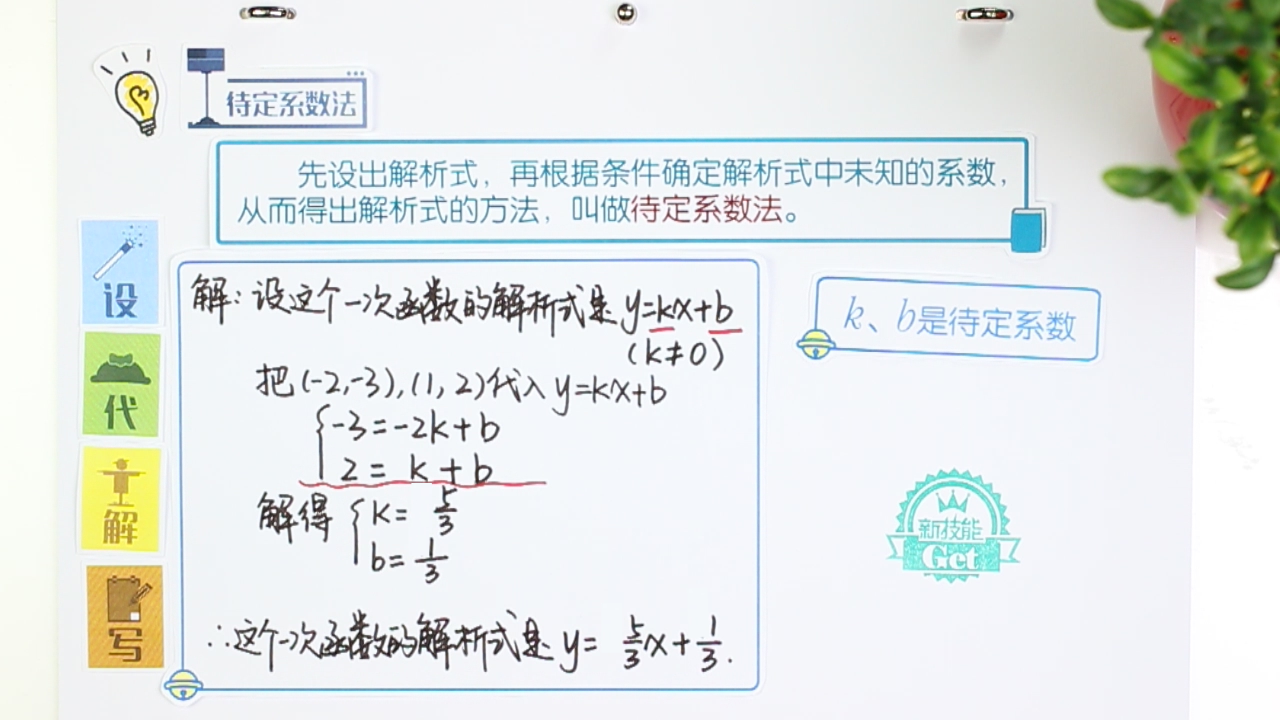 待定系数法
先设出解析式，再根据条件确定解析式中未知的系数，
从而得出解析式的方法，叫做待定系数法。
设
代
解
写
解：设这个一次函数的解析式是 y=kx+b
(k≠0)
把(-2,-3),(1,2)代入 y=kx+b
-3=-2k+b
2=k+b
解得
k=5/3
b=1/3
∴这个一次函数的解析式是 y=5/3x+1/3.
k、b是待定系数
新技能
Get